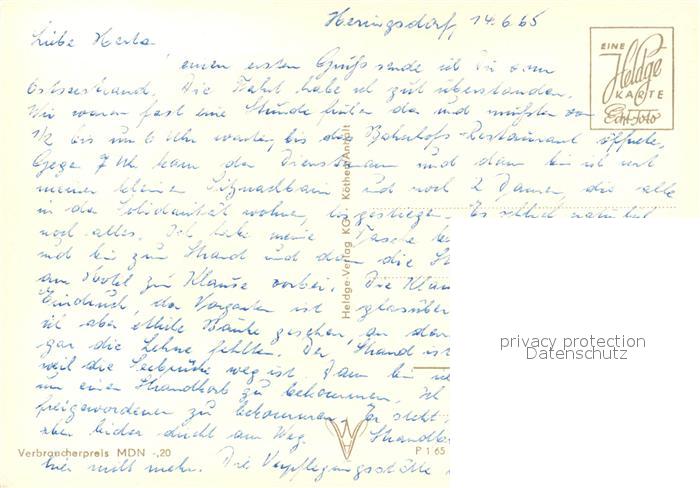 Heringsdorf, 14.6.65
Liebe Herta
einen ersten Gruß sende ich Dir vom
Ostseestrand. Die Fahrt habe ich gut überstanden.
Wir waren fast eine Stunde früher da und mußten von
1/2 bis um 6 Uhr warten, bis das Bahnhofs-Restaurant öffnete.
Gegen 7 Uhr kam der Dienstmann und dann bin ich mit
meiner kleinen Sitznachbarin und noch 2 Damen, die alle
in der Solidarität wohnen, losgestiegen. Es schlief natürlich
noch alles. Ich habe meine Tasche
und bin zum Strand und dann die
am Hotel zur Klause vorbei. Die
Eindruck, der Vorgarten ist
ich aber etliche Bänke gesehen, an denen
gar die Lehne fehlten. Der Strand ist
weil die Seebrücke weg ist. Dann bin
um einen Strandkorb zu bekommen. Ich
freigewordenen zu bekommen. Er steht
aber leider dicht am Weg. Strandkor
hier nicht mehr. Die Verpflegungsstätte
EINE
Heldge
KARTE
Echt Foto
Heldge-Verlag KG. Köthen/Anhalt
Verbraucherpreis MDN -,20
P 1 65
privacy protection
Datenschutz